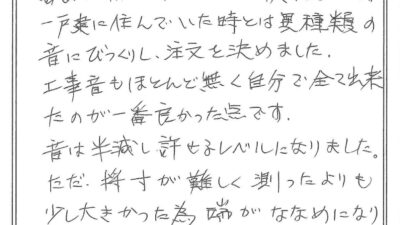 一戸建に住んでいた時とは異種類の
音にびっくりし、注文を決めました.
工事音もほとんど無く自分で全て出来
たのが一番良かった点です.
音は半減し許せるレベルになりました。
ただ、採寸が難しく測ったよりも
少し大きかった為端がななめになり